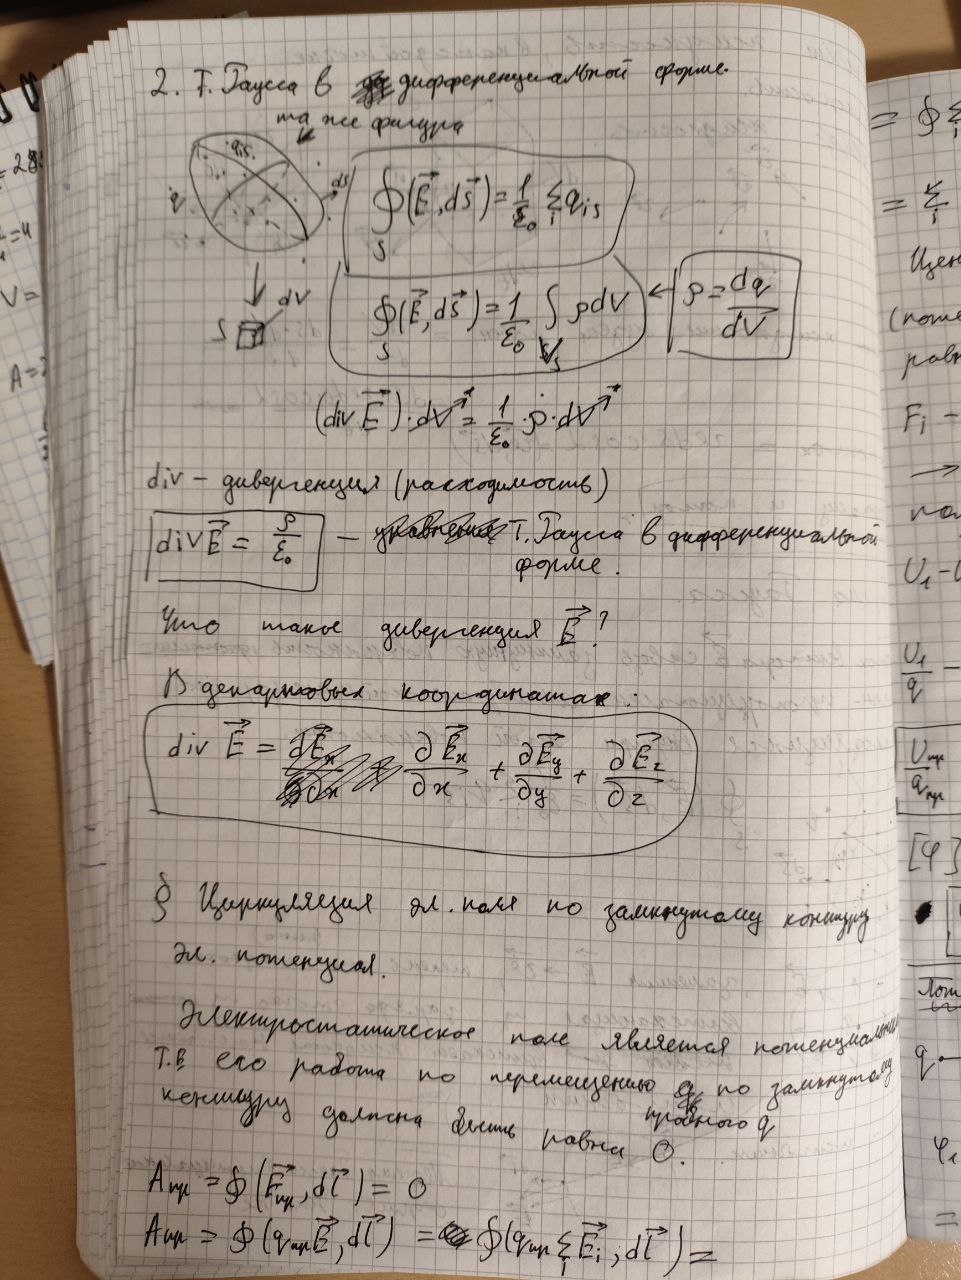 2. Т. Гаусса в дифференциальной форме.
та же фигура
q_is
q
dS
∮_S (E⃗, dS⃗) = 1/ε₀ Σ_i q_is
S
dV
∮_S (E⃗, dS⃗) = 1/ε₀ ∫_{V_S} ρdV ← ρ = dq/dV
(div E⃗)·dV = 1/ε₀ ·ρ·dV
div – дивергенция (расходимость)
div E⃗ = ρ/ε₀ – Т. Гаусса в дифференциальной
форме.
Что такое дивергенция E⃗ ?
В декартовых координатах :
div E⃗ = ∂E⃗x/∂x + ∂E⃗y/∂y + ∂E⃗z/∂z
§ Циркуляция эл. поля по замкнутому контуру
эл. потенциал.
Электростатическое поле является потенциальным
т.в его работа по перемещению q по замкнутому
пробного q
контуру должна быть равна 0.
Aпр = ∮(E⃗пр, dl⃗) = 0
Aпр = ∮(qпр E⃗, dl⃗) = ∮(qпр Σ_i E⃗i, dl⃗) =
= ∮ Σ_i
= Σ_i
(поте
равн
Fi –
→
пол
U₁ –
U₁/q –
Uпр/qпр
[φ]
Пот
q
φ₁
=
A =
V =